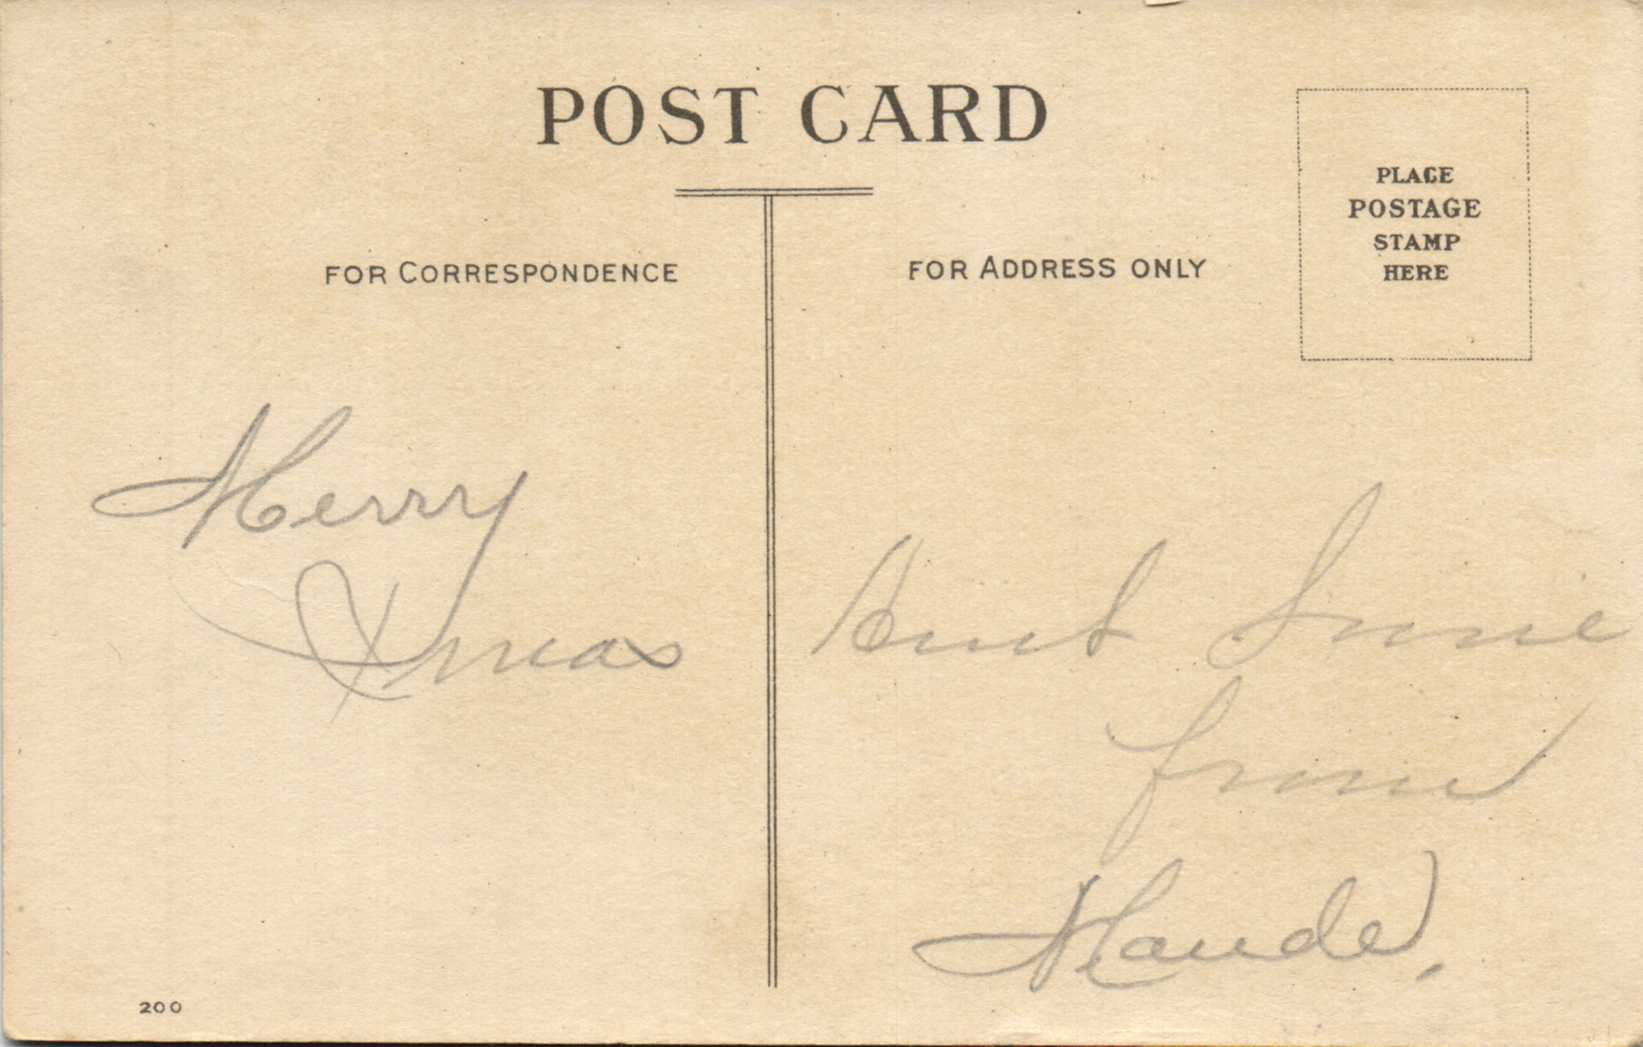 POST CARD
FOR CORRESPONDENCE
FOR ADDRESS ONLY
PLACE
POSTAGE
STAMP
HERE
Merry
Xmas
Aunt
from
Maude.
200